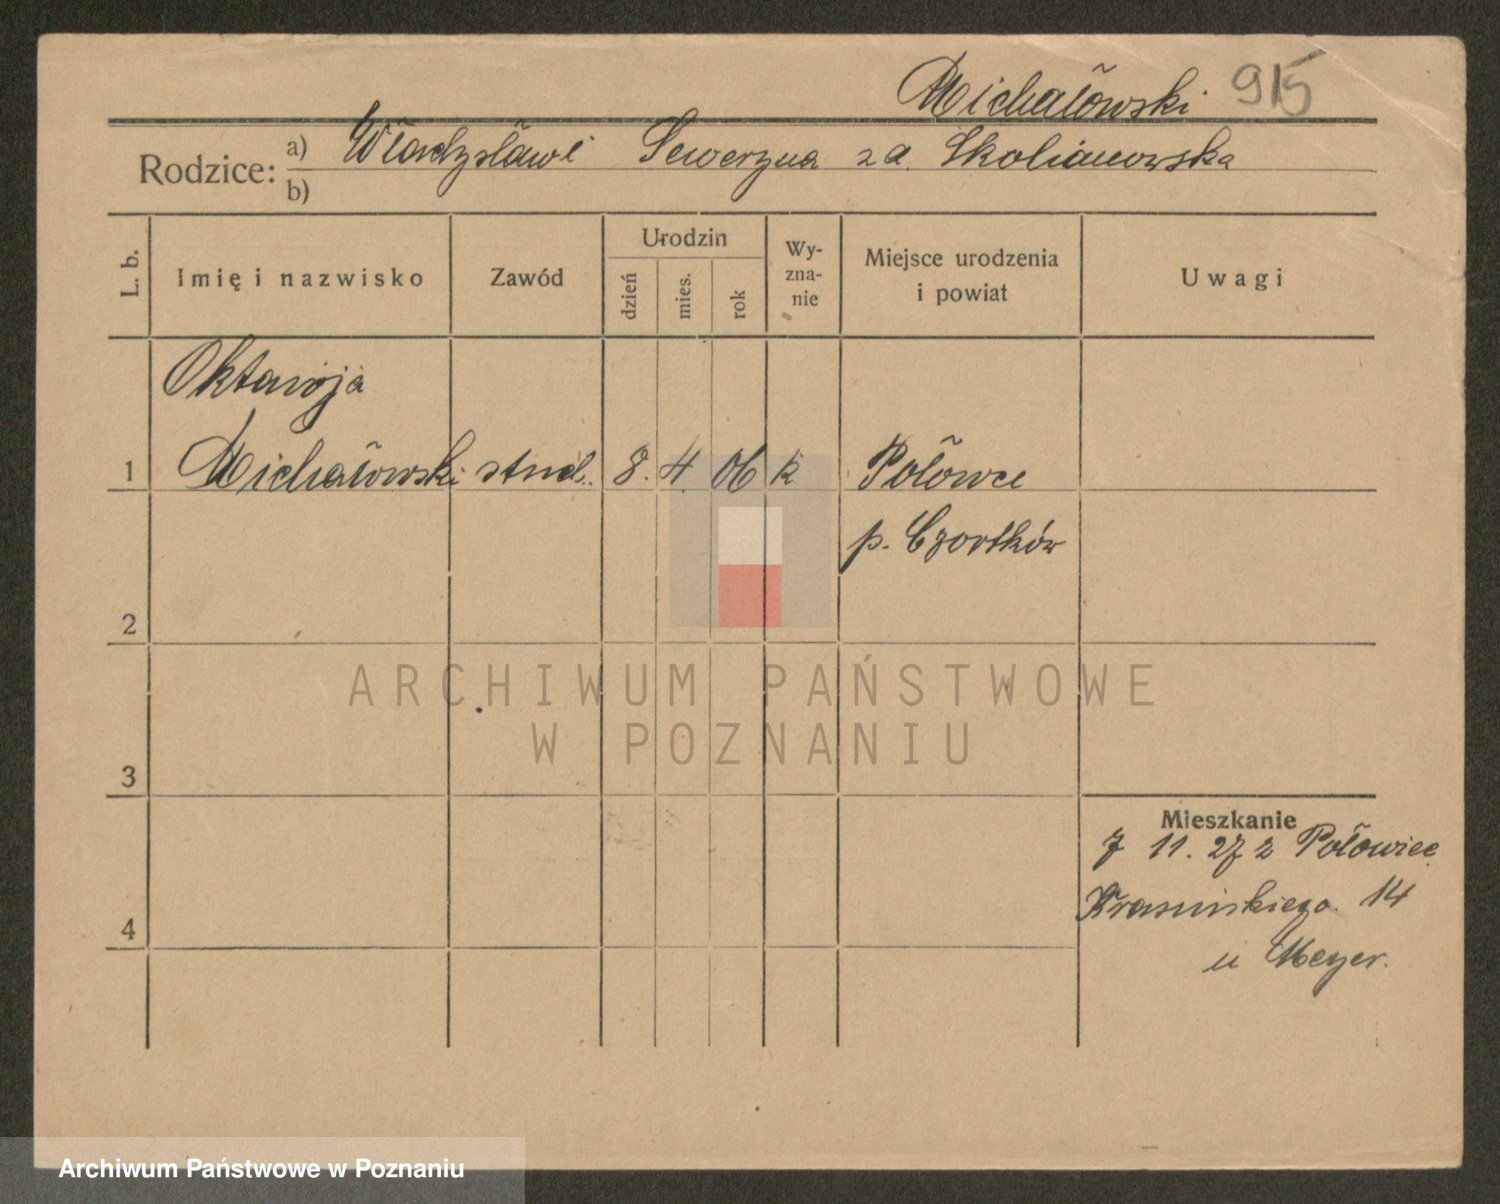 Michałowski 915
Rodzice: a) Władysław i Seweryna za. Skolimowska
b)
L. b. Imię i nazwisko Zawód Urodzin dzień mies. rok Wy-zna-nie Miejsce urodzenia i powiat Uwagi
Oktawja
1 Michałowski stud. 8. 4. 06 k Połowce
p. Czortków
2
ARCHIWUM PAŃSTWOWE
W POZNANIU
3
Mieszkanie
7 11. 27 z Połowiec
4 Krasińskiego 14
u Meyer.
Archiwum Państwowe w Poznaniu